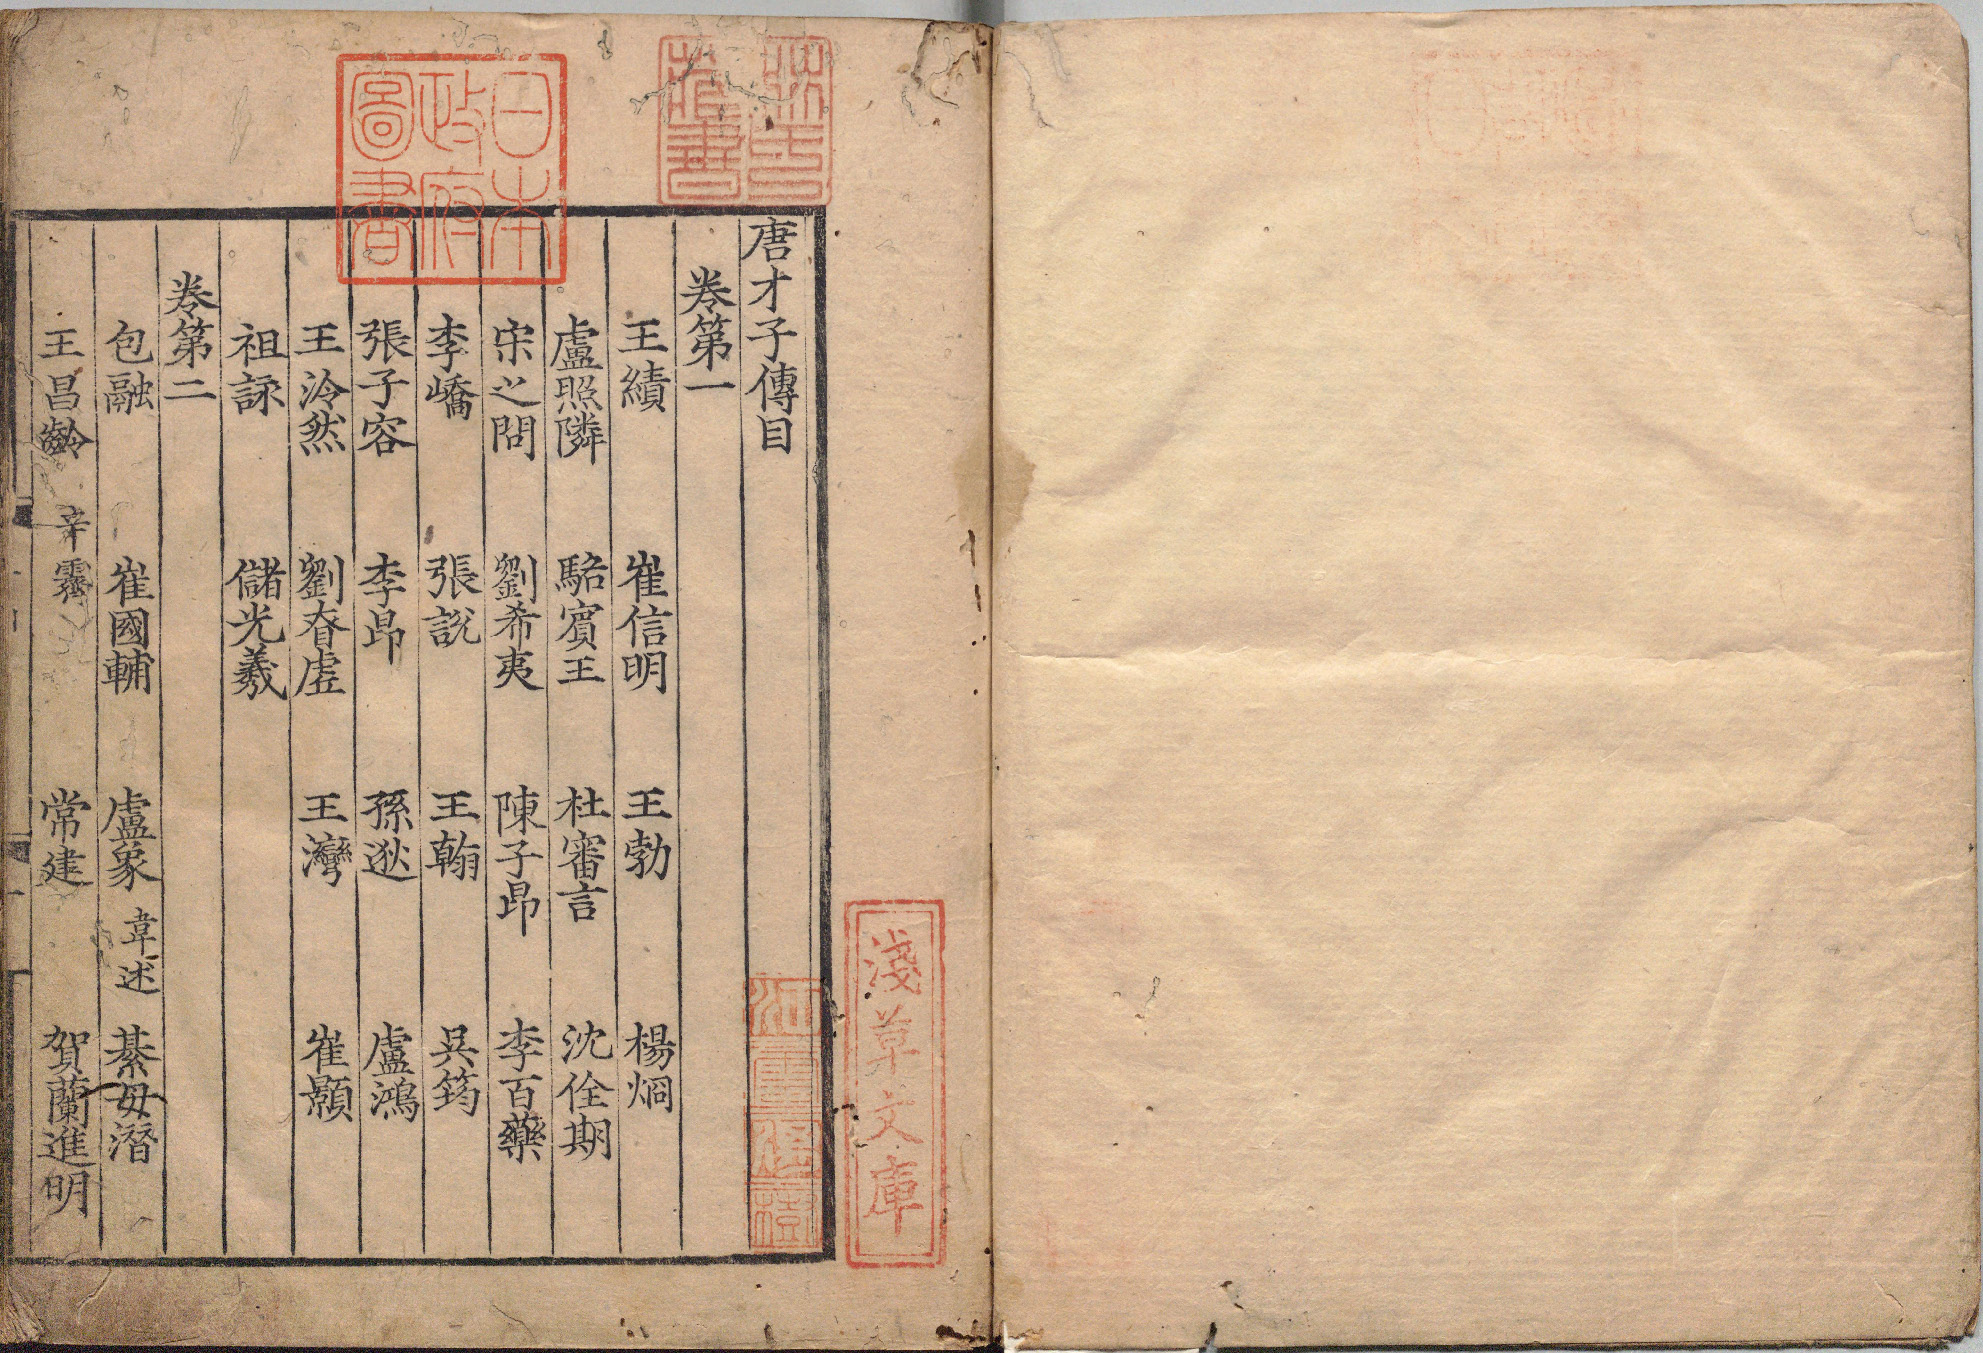 唐才子傳目
卷第一
王績 崔信明 王勃 楊烱
盧照隣 駱賓王 杜審言 沈佺期
宋之問 劉希夷 陳子昂 李百藥
李嶠 張說 王翰 吳筠
張子容 李昂 孫逖 盧鴻
王泠然 劉眘虛 王灣 崔顥
祖詠 儲光羲
卷第二
包融 崔國輔 盧象 韋述 綦毋潛
王昌齡 辛霽 常建 賀蘭進明
日本政府圖書
藏書
淺草文庫